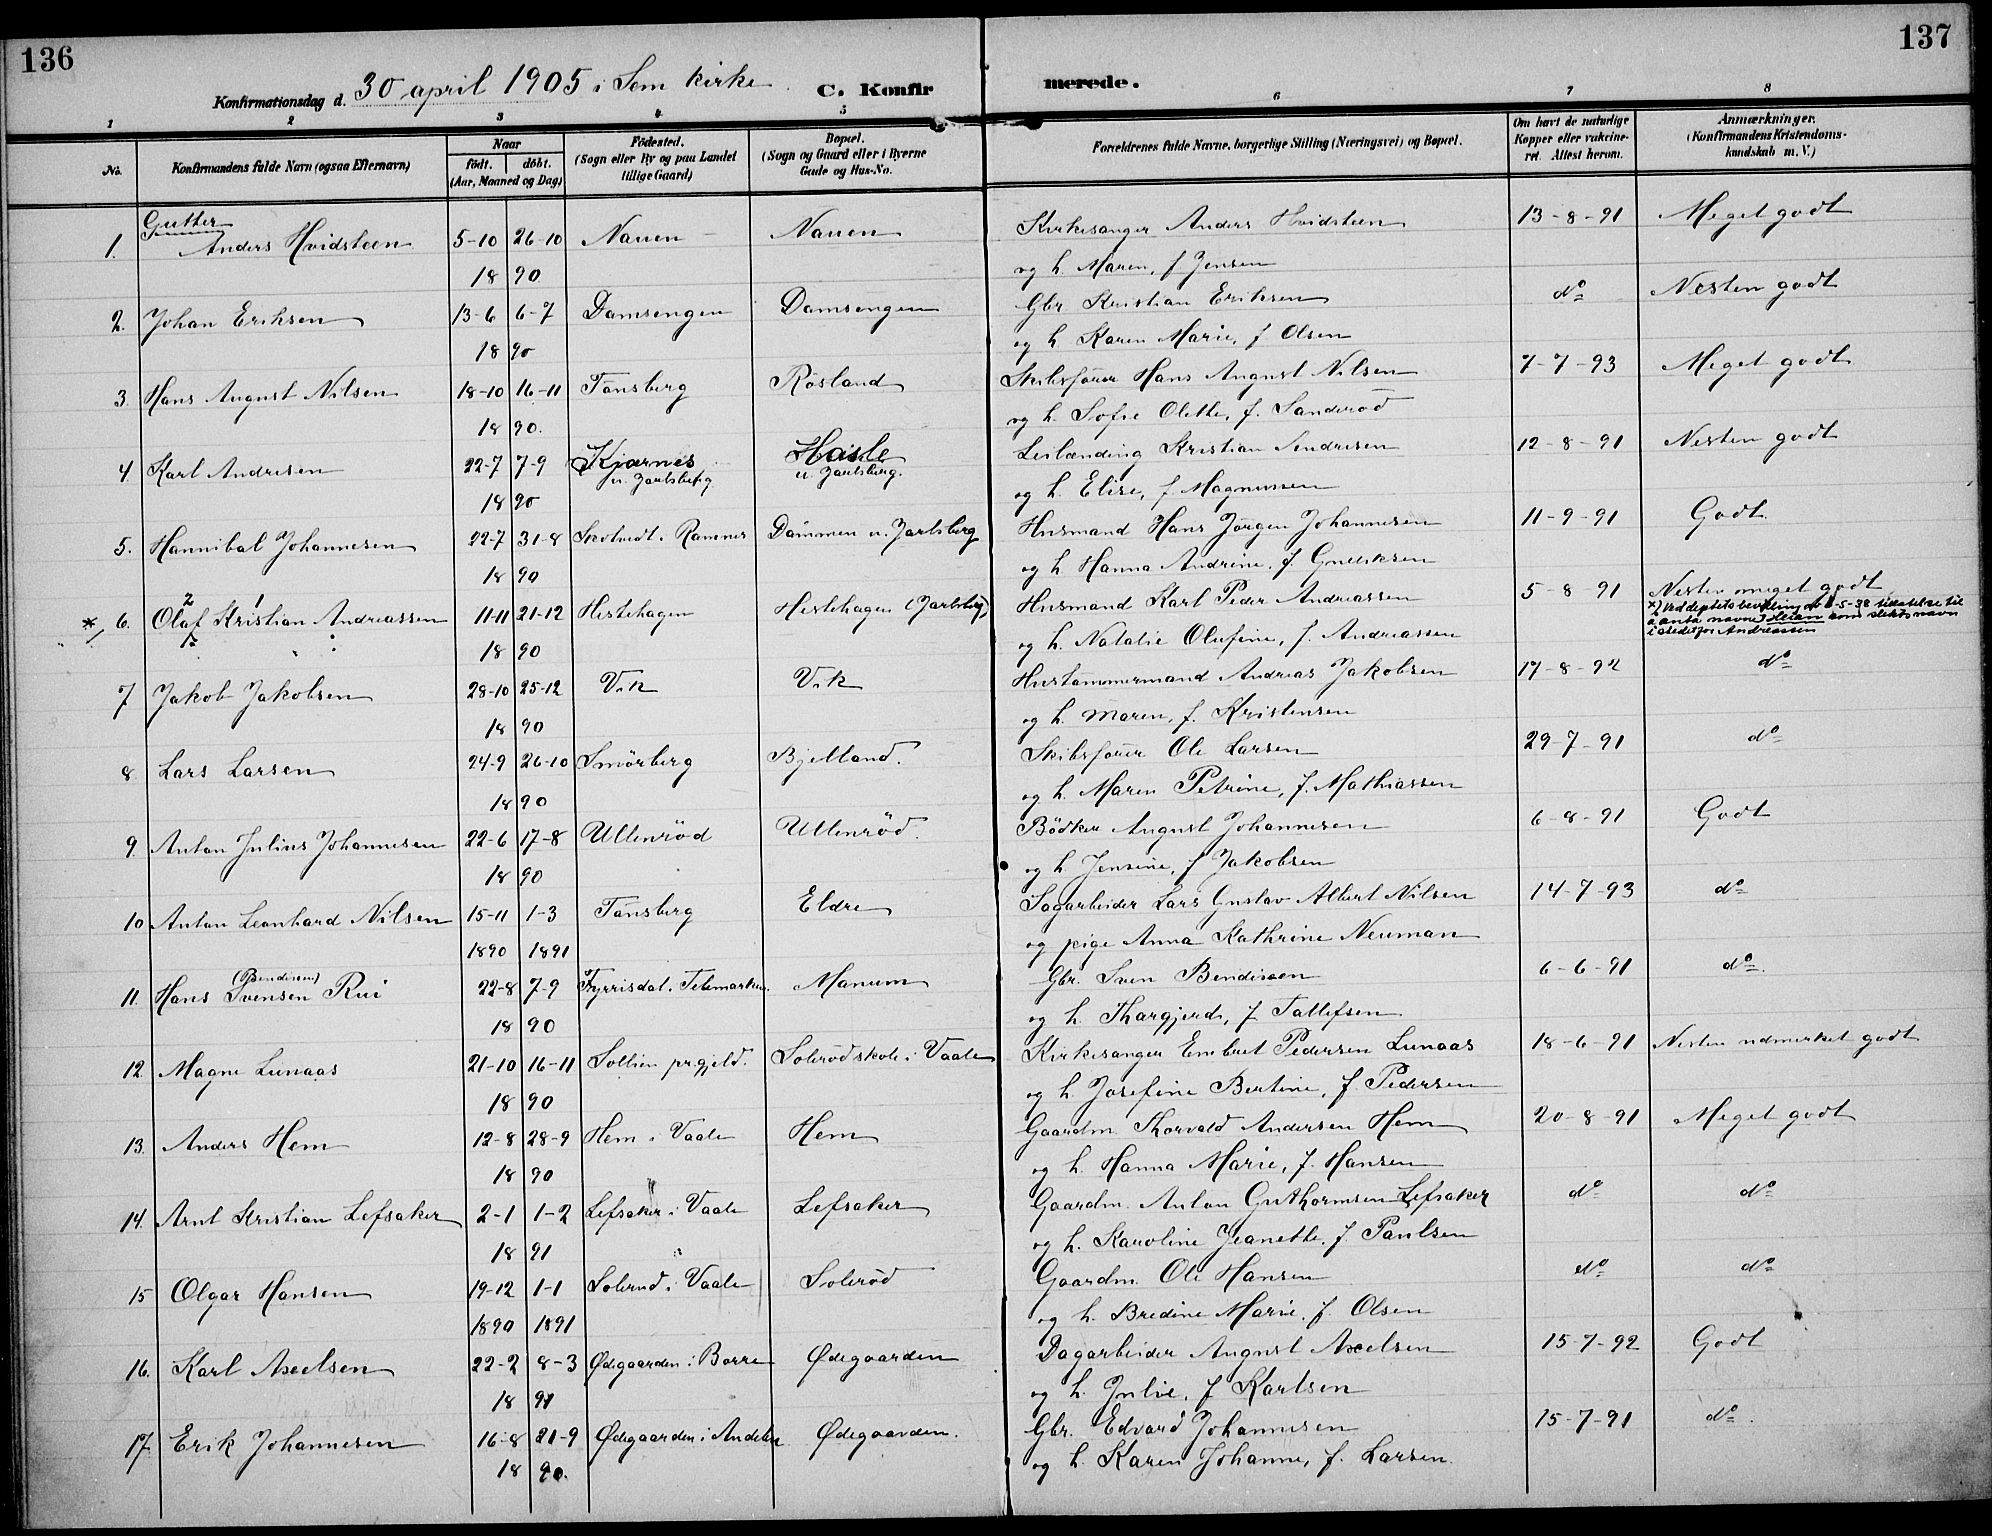 136
137
Konfirmationsdag d. 30 april 1905 i Sem kirke. C. Konfir merede.
1 2 3 4 5 6 7 8
No. Konfirmandens fulde Navn (ogsaa Efternavn) Naar født. døbt. (Aar, Maaned og Dag) Fødested. (Sogn eller By og paa Landet tillige Gaard) Bopæl. (Sogn og Gaard eller i Byerne Gade og Hus-No. Forældrenes fulde Navne, borgerlige Stilling (Næringsvei) og Bopæl. Om havt de naturlige Kopper eller vakcineret. Attest herom. Anmærkninger. (Konfirmandens Kristendomskundskab m. V.)
Gutter
1. Anders Hvidsteen 5-10 26-10 Nauen Nauen Kirkesanger Anders Hvidsteen 13-8-91 Meget godt
18 90 og h. Maren, f Jensen
2. Johan Eriksen 13-6 6-7 Damsengen Damsengen Gbr Kristian Eriksen do Nesten godt
18 90 og h Karen Marie, f Olsen
3. Hans August Nilsen 18-10 16-11 Tønsberg Røsland Skibsfører Hans August Nilsen 7-7-93 Meget godt
18 90. og h. Sofie Olette, f. Sanderød
4. Karl Andresen 22-7 7-9 Kjærnes u. Jarlsberg Hasle u. Jarlsberg. Leilænding Kristian Andresen 12-8-91 Nesten godt
18 90 og h. Elise, f Magnussen
5. Hannibal Johannesen 22-7 31-8 Skotvedt i Ramnes Dammen u. Jarlsberg Husmand Hans Jørgen Johannesen 11-9-91 Godt
18 90 og h Hanna Andrine, f.
2 1
*/ 6. Olaf Kristian Andreassen 11-11 21-12 Hestehagen Hestehagen (Jarlsberg) Husmand Karl Peder Andreassen 5-8-91 Nesten meget godt
18 90 og h. Natalie Olufine, f. Andreassen
*) Ved deptets bevilling av -5-38 tillatelse til
å anta navnet som slektsnavn
istedetfor Andreassen
7 Jakob Jakobsen 28-10 25-12 Vik Vik Hustømmermand Andreas Jakobsen 17-8-92 do
18 90 og h. Maren, f. Kristensen
8 Lars Larsen 24-9 26-10 Smørberg Bjelland. Skibsfører Ole Larsen 29-7-91 do
18 90 og h. Maren Petrine, f. Mathiassen
9. Anton Julius Johannesen 22-6 17-8 Ullenrød Ullenrød. Bødker August Johannesen 6-8-91 Godt
18 90 og h Jensine, f Jakobsen
10 Anton Leonhard Nilsen 15-11 1-3 Tønsberg Eldre Sagarbeider Lars Gustav Albert Nilsen 14-7-93 do
1890 1891 og pige Anna Kathrine Neuman
(Bendixen)
11. Hans Svensen Rui 22-8 7-9 Fyrrisdal i Telemarken. Manum Gbr. Sven Bendixen 6-6-91 do
18 90 og h. Thorgjerd, f Tallefsen
12. Magne Lunaas 21-10 16-11 Sollien prgjeld. Solerød skole i Vaale Kirkesanger Embret Pedersen Lunaas 18-6-91 Nesten udmerket godt
18 90 og h. Josefine Bertine, f Pedersen
13. Anders Hem 12-8 28-9 Hem i Vaale Hem Gaardm. Thorvald Andersen Hem 20-8-91 Meget godt
18 90 og h. Hanna Marie, f. Hansen
14. Arnt Kristian Lefsaker 2-1 1-2 Lefsaker i Vaale Lefsaker Gaardm. Anton Guthormsen Lefsaker do do
18 91 og h. Karoline Jeanette, f. Paulsen
15 Olgar Hansen 19-12 1-1 Solerud i Vaale Solerød Gaardm. Ole Hansen do do
1890 1891 og h. Bredine Marie, f. Olsen
16. Karl Axelsen 22-2 8-3 Ødegaarden i Borre Ødegaarden Dagarbeider August Axelsen 15-7-92 Godt
18 91 og h. Julie, f Karlsen
17. Erik Johannesen 16-8 21-9 Ødegaarden i Andebu Ødegaarden. Gbr. Edvard Johannesen 15-7-91 do.
18 90. og h. Karen Johanne, f. Larsen